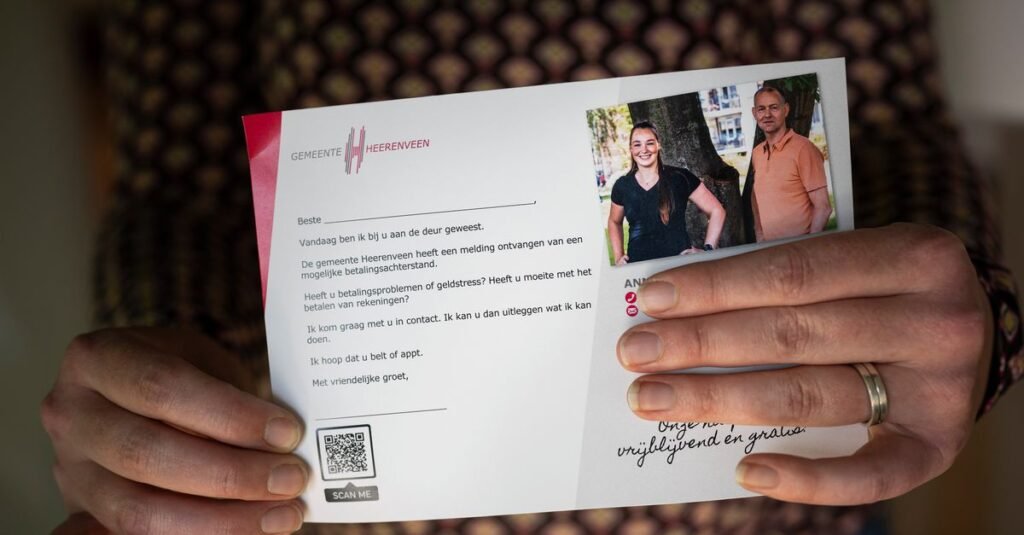 GEMEENTE HEERENVEEN
Beste
Vandaag ben ik bij u aan de deur geweest.
De gemeente Heerenveen heeft een melding ontvangen van een
mogelijke betalingsachterstand.
Heeft u betalingsproblemen of geldstress? Heeft u moeite met het
betalen van rekeningen?
Ik kom graag met u in contact. Ik kan u dan uitleggen wat ik kan
doen.
Ik hoop dat u belt of appt.
Met vriendelijke groet,
SCAN ME
Onze
vrijblijvend en gratis.